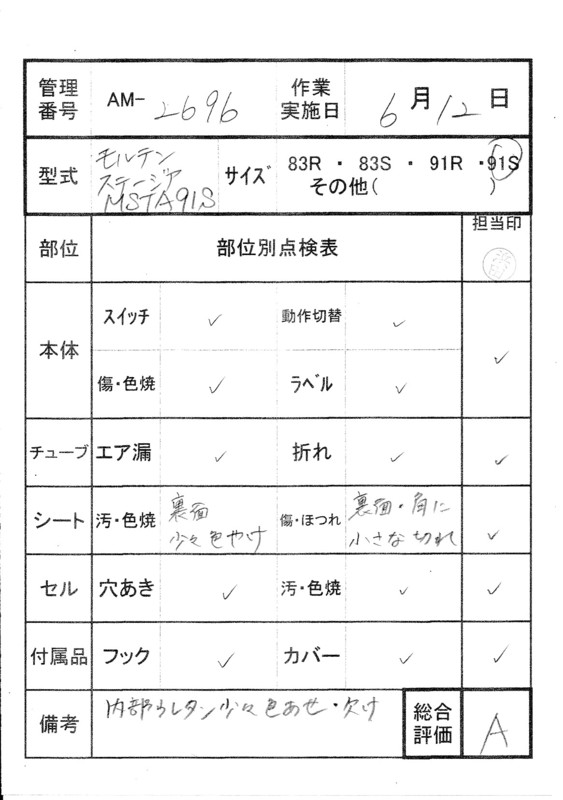 管理番号 AM-2696 作業実施日 6月12日
型式 モルテン ステージア MSTA91S サイズ 83R ・ 83S ・ 91R ・ 91S
その他( )
部位 部位別点検表 担当印
本体 スイッチ ✓ 動作切替 ✓ ✓
傷・色焼 ✓ ラベル ✓
チューブ エア漏 ✓ 折れ ✓ ✓
シート 汚・色焼 裏面 少々色やけ 傷・ほつれ 裏面・角に 小さな切れ ✓
セル 穴あき ✓ 汚・色焼 ✓ ✓
付属品 フック ✓ カバー ✓ ✓
備考 内部ウレタン少々色あせ・欠け 総合評価 A